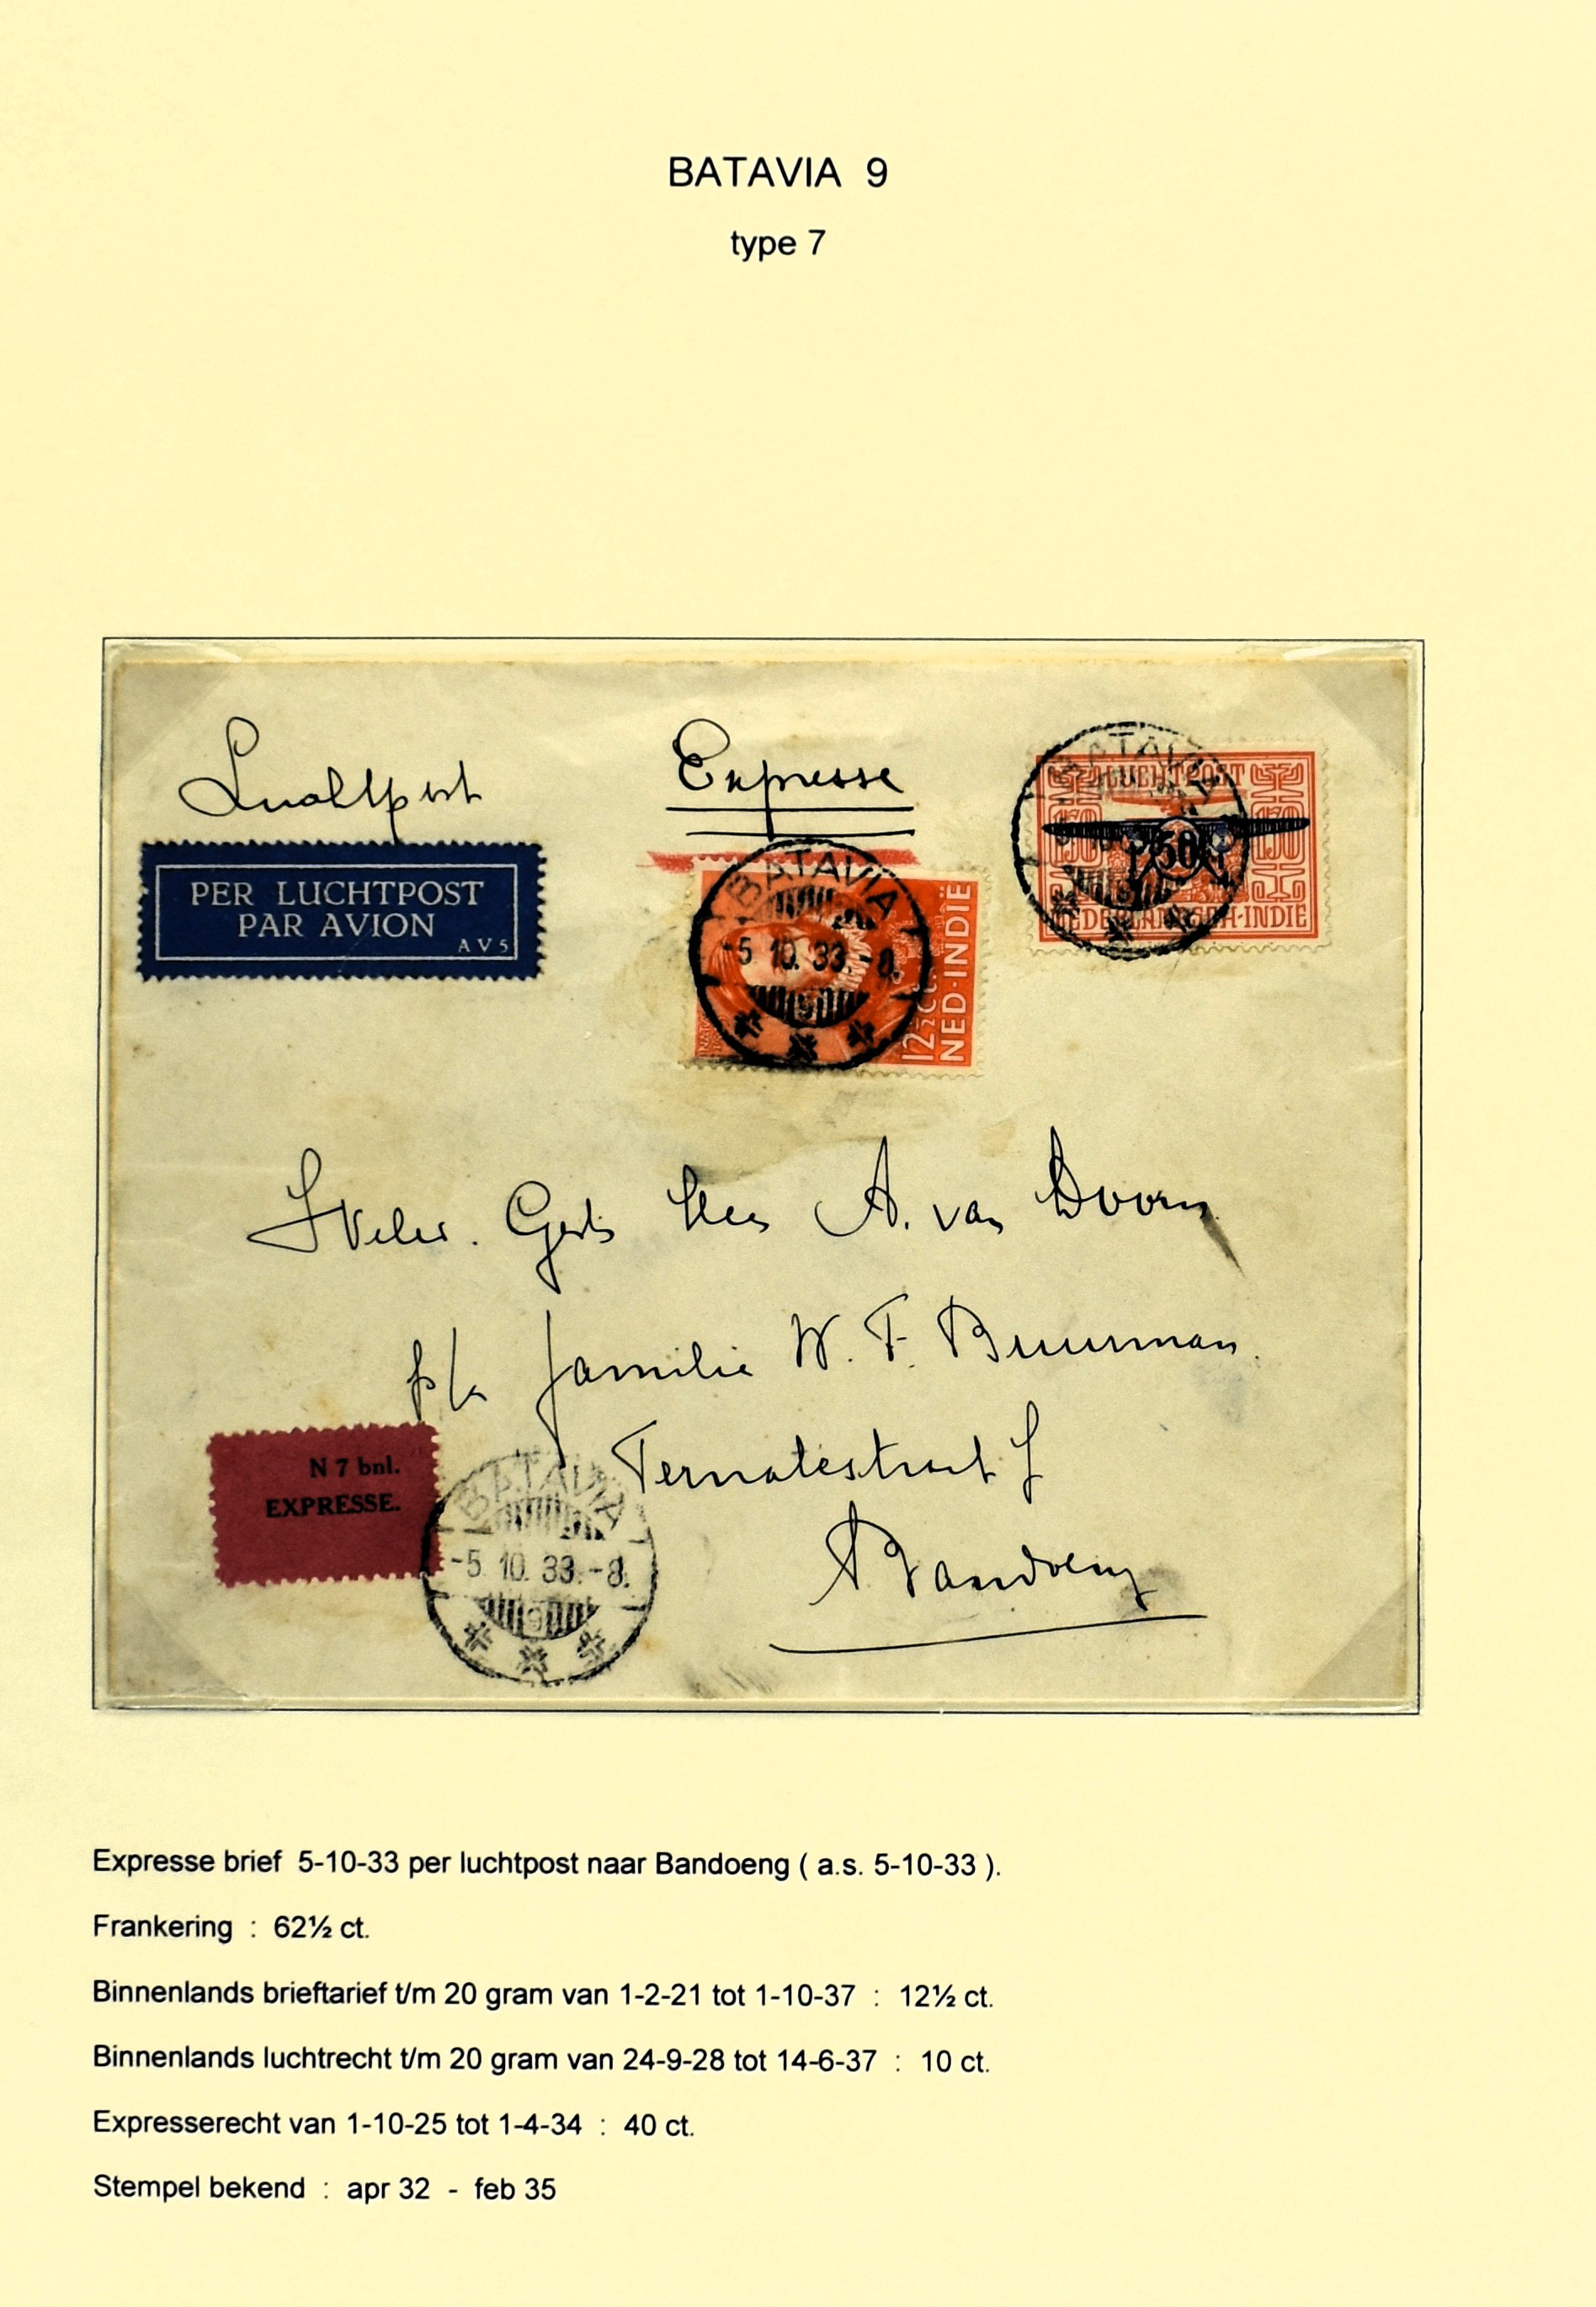 BATAVIA 9
type 7
Luchtpost
Expresse
PER LUCHTPOST
PAR AVION
AV5
BATAVIA
-5.10.33.-8.
9
12½ Ct.
NED-INDIË
BATAVIA
LUCHTPOST
150 150
50
NEDERLANDSCH-INDIE
Weled. Gestr. Heer A. van Doorn.
p/a familie W. F. Buurman.
Ternatestraat
Bandoeng
N 7 bnl.
EXPRESSE.
BATAVIA
-5.10.33.-8.
9
Expresse brief 5-10-33 per luchtpost naar Bandoeng ( a.s. 5-10-33 ).
Frankering : 62½ ct.
Binnenlands brieftarief t/m 20 gram van 1-2-21 tot 1-10-37 : 12½ ct.
Binnenlands luchtrecht t/m 20 gram van 24-9-28 tot 14-6-37 : 10 ct.
Expresserecht van 1-10-25 tot 1-4-34 : 40 ct.
Stempel bekend : apr 32 - feb 35